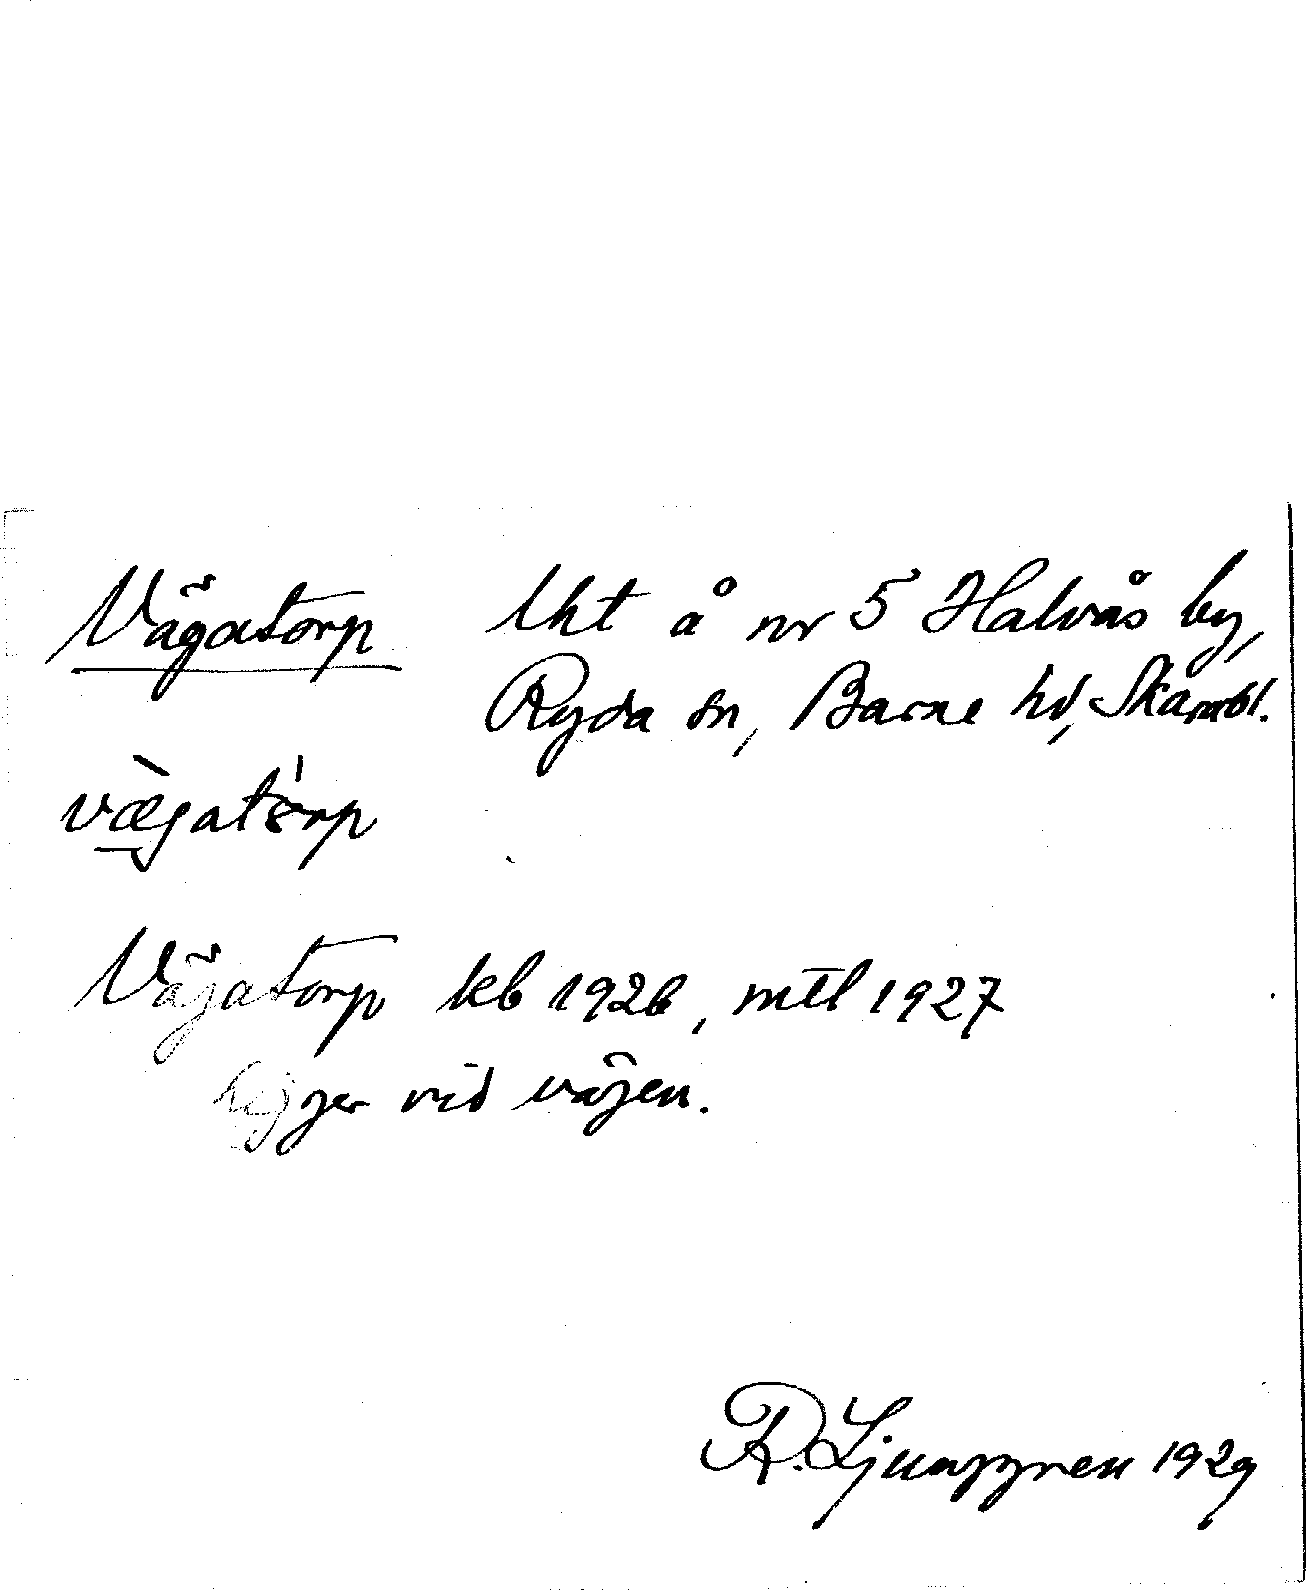 Vägatorp lht å nr 5 Halvås by,
Ryda sn, Barne hd, Skarabl.
vægatorp
Vägatorp kb 1926, mtl 1927
Ligger vid vägen.
R. Ljunggren 1929